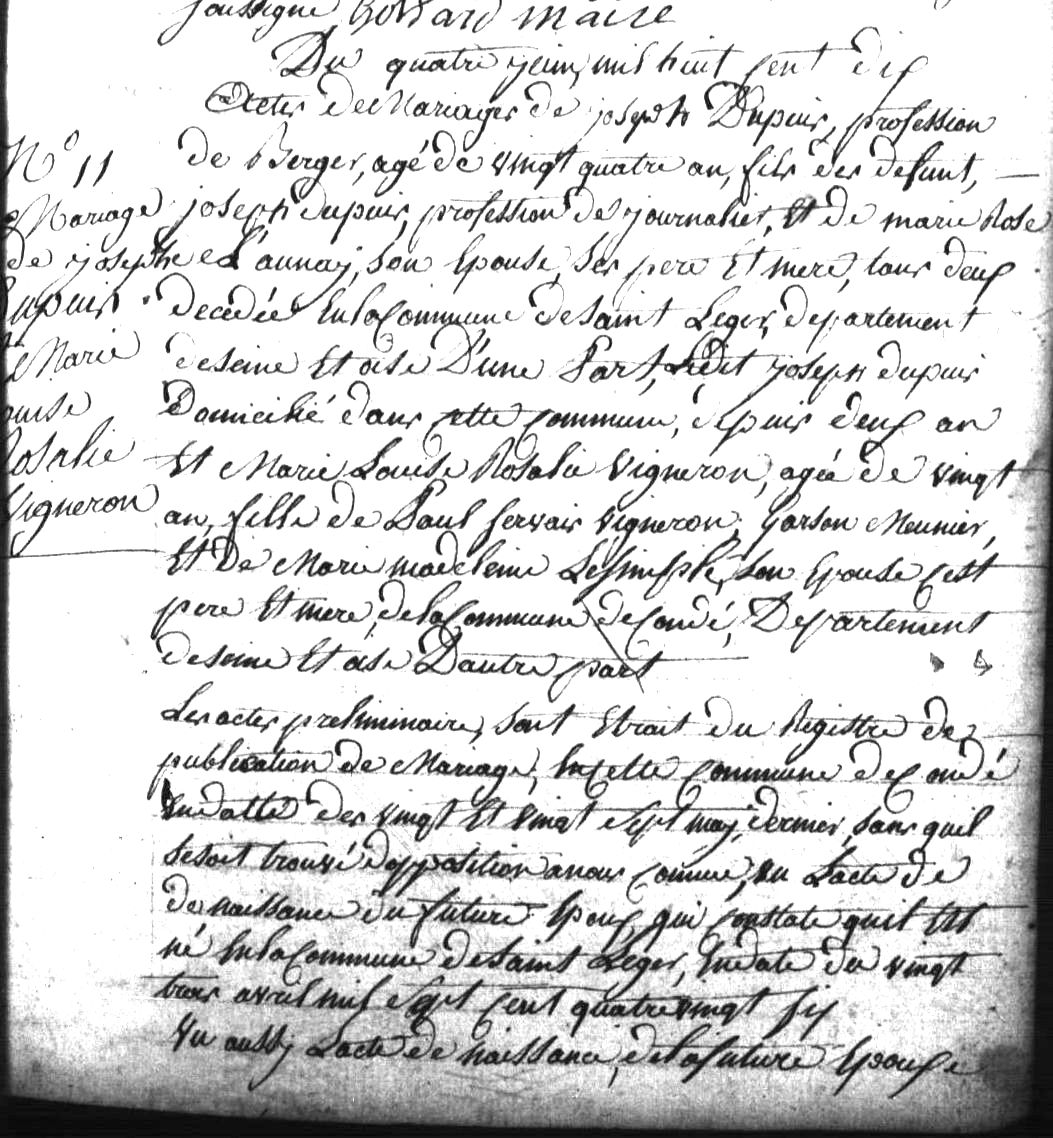 soussigné, Bossard maire
Du quatre juin, mil huit cent dix
Actes de Mariages de joseph Dupuis, profession
de Berger, agé de vingt quatre an, fils des defunt,
joseph dupuis, profession de journalier, Et de marie Rose
L'aunay, son Epouse, ses pere Et mere, tous deux
decedée En la Commune de Saint Leger, departement
de seine Et oise D'une Part, Ledit joseph dupuis
Domicilié dans cette commune, depuis deux an
Et Marie Louise Rosalie Vigneron, agée de vingt
an, fille de Paul Gervais Vigneron, Garson Meunier,
Et De Marie madeleine Lesimple, son Epouse cest
pere Et mere, de la Commune de Condé, Departement
de seine Et oise D'autre part
N° 11
Mariage
de josephe
dupuis
Et Marie
Louise
Rosalie
Vigneron
Les actes preliminaire, sont Etrait du Registre de
publication de Mariage, En cette commune de Condé
En datte des vingt Et vingt Sept may, dernier, sans quil
se soit trouvé dopposition a nous connue, vu Lacte de
de naissance du future Epoux, qui constate quil Est
né En la Commune de Saint Leger, En date du vingt
trois avril mil Sept cent quatre vingt six
Vu aussy Lacte de naissance, de la future Epouse